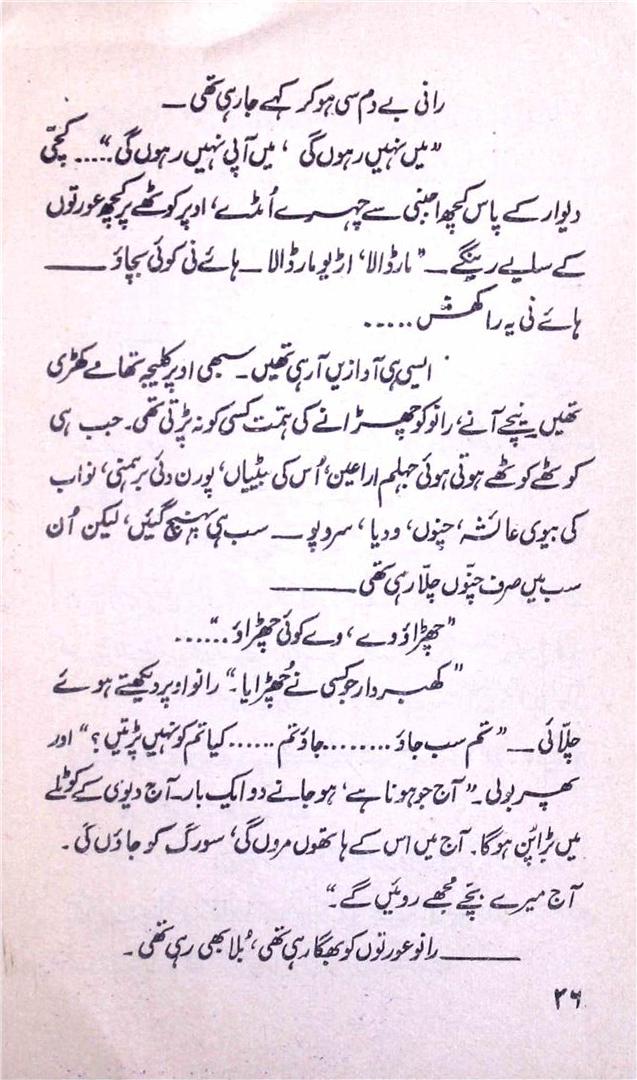 رانی بے دم سی ہو کر کہے جا رہی تھی ــ
”میں نہیں رہوں گی ‘ میں آپی نہیں رہوں گی“..... کچّی
دیوار کے پاس کچھ اجنبی سے چہرے اُمڈے، اوپر کوٹھے پر کچھ عورتوں
کے سایے رینگے ــ ”مار ڈالا‘ اڑیو مار ڈالا ــ ہائے نی کوئی بچاؤ ــــــ
ہائے نی یہ راکھش .....
ایسی ہی آوازیں آ رہی تھیں۔ سبھی اوپر کلیجہ تھامے کھڑی
تھیں نیچے آنے، رانو کو چھڑانے کی ہمّت کسی کو نہ پڑتی تھی۔ جب ہی
کوٹھے کوٹھے ہوتی ہوئی جہلم اراعین، اُس کی بیٹیاں، پورن دئی برہمنی، نواب
کی بیوی عائشہ، چنّوں، ودیا، سروپو ــــ سب ہی پہنچ گئیں، لیکن اُن
سب میں صرف چنّوں چلّا رہی تھی ــــــــ
”چھڑاؤ وے، وے کوئی چھڑاؤ......“
”کھبردار جو کسی نے چُھڑایا۔“ رانو اوپر دیکھتے ہوئے
چلّائی ــ ”تم سب جاؤ ........ جاؤ تم ...... کیا تم کو نہیں پڑتیں؟“ اور
پھر بولی۔ ”آج جو ہونا ہے‘ ہو جانے دو ایک بار۔ آج دیوی کے کوٹلے
میں بڑا پُن ہوگا۔ آج میں اس کے ہاتھوں مروں گی‘ سورگ کو جاؤں گی۔
آج میرے بچّے مُجھے روئیں گے۔“
ــــــــ رانو عورتوں کو بھگا رہی تھی، بُلا بھی رہی تھی۔
۲۶